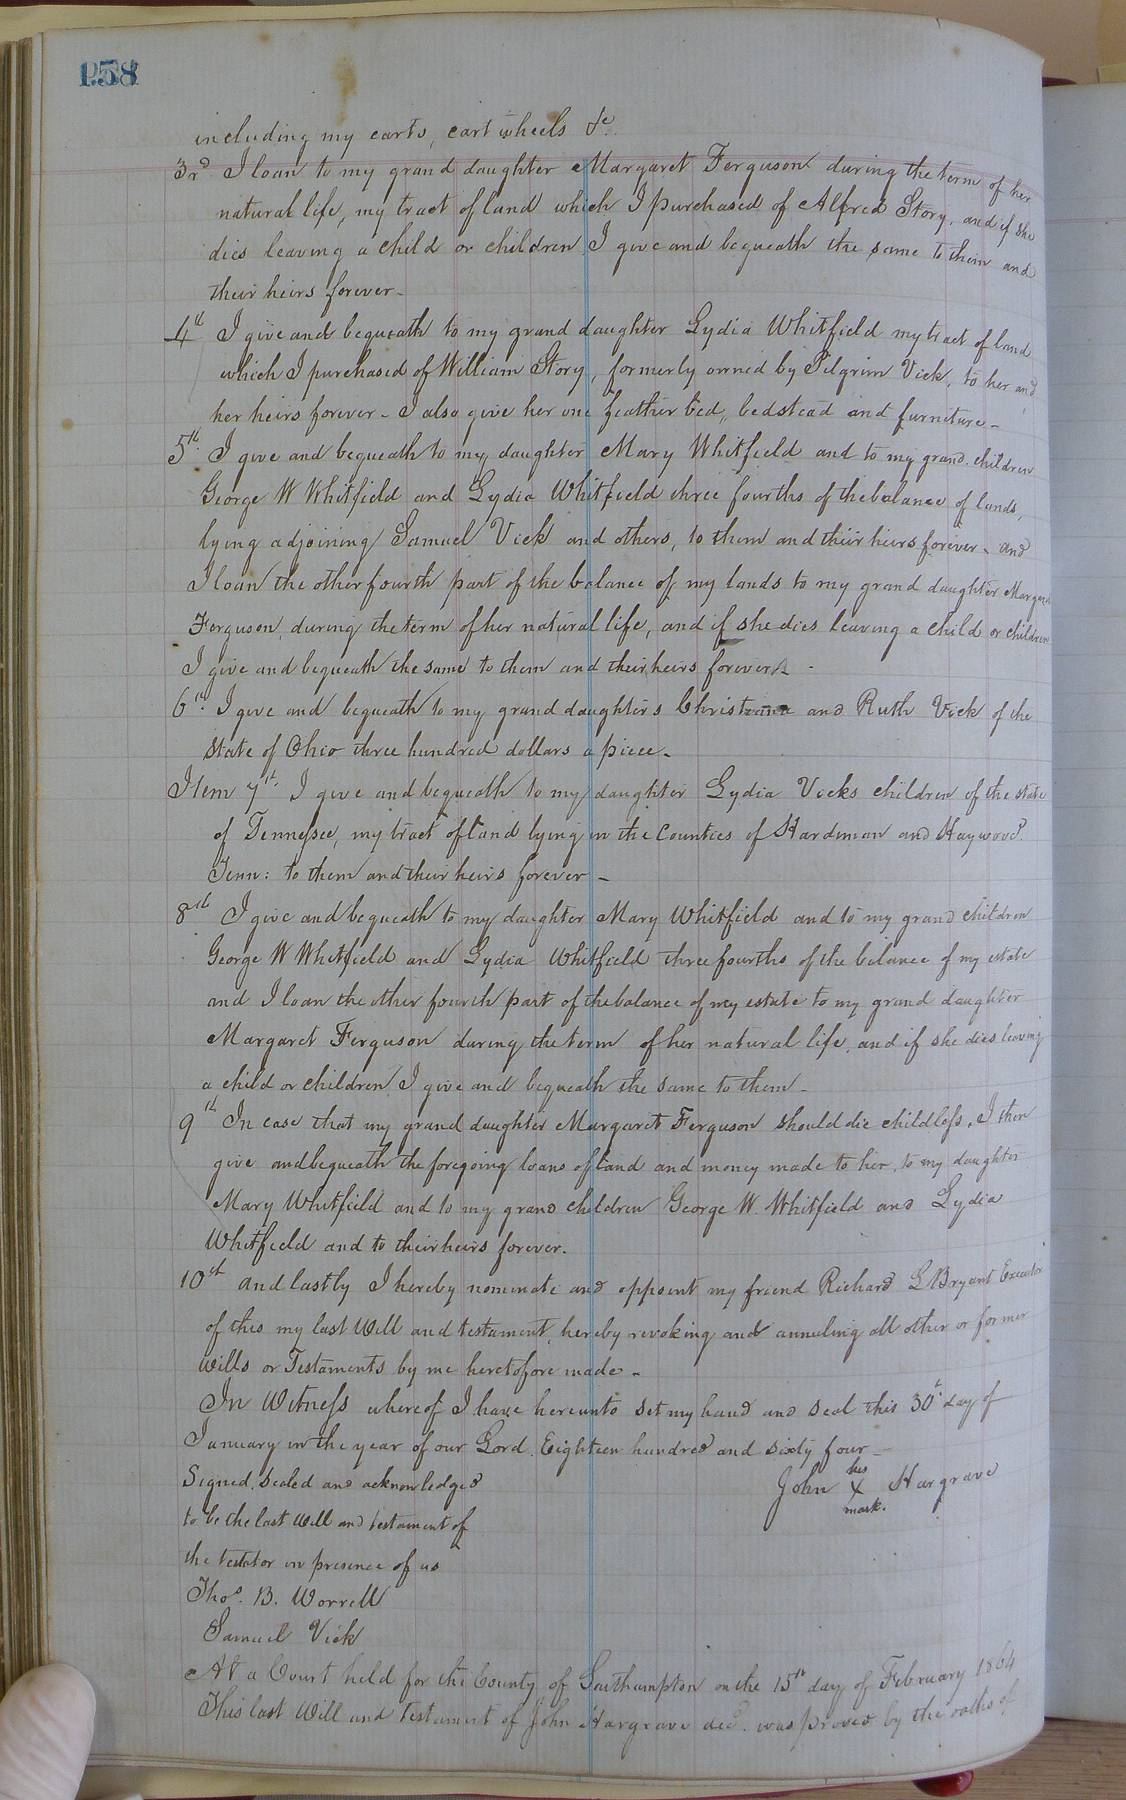 158
including my carts, cart wheels &c.
3rd I loan to my grand daughter Margaret Ferguson during the term of her
natural life, my tract of land which I purchased of Alfred Story, and if she
dies leaving a child or children I give and bequeath the same to them and
their heirs forever-
4th I give and bequeath to my grand daughter Lydia Whitfield my tract of land
which I purchased of William Story, formerly owned by Pilgrim Vick, to her and
her heirs forever - I also give her one feather bed, bedstead and furniture-
5th I give and bequeath to my daughter Mary Whitfield and to my grand children
George W Whitfield and Lydia Whitfield three fourths of the balance of lands,
lying adjoining Samuel Vick and others, to them and their heirs forever- and
I loan the other fourth part of the balance of my lands to my grand daughter
Ferguson, during the term of her natural life, and if she dies leaving a child or children
I give and bequeath the same to them and their heirs forever -
6th I give and bequeath to my grand daughters and Ruth Vick of the
State of Ohio three hundred dollars a piece-
Item 7th I give and bequeath to my daughter Lydia Vicks children of the state
of Tennysee, my tract of land lying in the Counties of Hardiman and Haywood
Tenn: to them and their heirs forever-
8th I give and bequeath to my daughter Mary Whitfield and to my grand children
George W Whitfield and Lydia Whitfield three fourths of the balance of my estate
and I loan the other fourth part of the balance of my estate to my grand daughter
Margaret Ferguson during the term of her natural life, and if she dies leaving
a child or children I give and bequeath the same to them-
9th In case that my grand daughter Margaret Ferguson should die childless, I then
give and bequeath the foregoing loans of land and money made to her, to my daughter
Mary Whitfield and to my grand children George W. Whitfield and Lydia
Whitfield and to their heirs forever.
10th and lastly I hereby nominate and appoint my friend Richard L Bryant Executor
of this my last Will and testament, hereby revoking and annuling all other or former
wills or Testaments by me heretofore made-
In Witness whereof I have hereunto set my hand and seal this 30th day of
January in the year of our Lord Eighteen hundred and sixty four-
Signed, sealed and acknowledged
his
John X Hargrave
mark.
to be the last will and testament of
the testator in presence of us
Thos. B. Worrell
Samuel Vick
At a Court held for the County of Southampton on the 15th day of February 1864
This last Will and Testament of John Hargrave decd. was proved by the oaths of